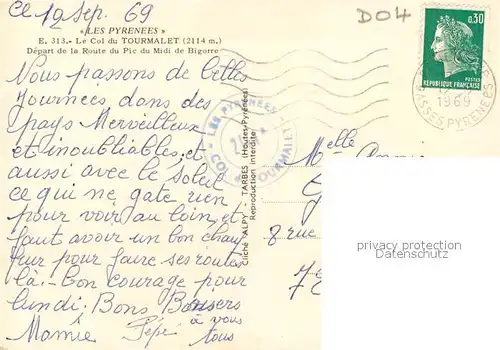 Ce 19 Sep. 69
D04
« LES PYRENEES »
E. 313. - Le Col du TOURMALET (2114 m.)
Départ de la Route du Pic du Midi de Bigorre
0,30
POSTES
RÉPUBLIQUE FRANÇAISE
1969
BASSES PYRENEES
Nous passons de belles
journées dans des
pays Merveilleux
et inoubliables, et
aussi avec le soleil
ce qui ne gate rien
pour voir au loin, et
faut avoir un bon chauf
feur pour faire ses routes
là. - bon courage pour
lundi. Bons Baisers
à vous
tous
Mamie Pépé
LES PYRENEES
COL du TOURMALET
Cliché "ALPY" - TARBES (Hautes-Pyrénées)
Reproduction interdite
Melle
8 rue
privacy protection
Datenschutz.